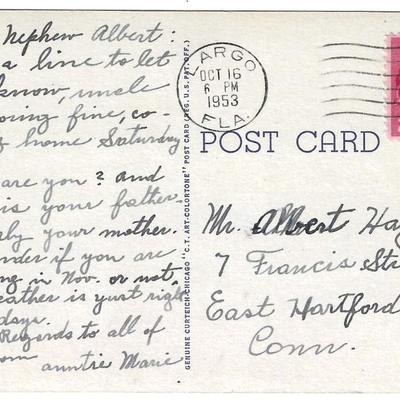 Nephew Albert:
a line to let
know, uncle
oing fine, co-
g home Saturday
are you? and
is your father.
rly your mother.
nder if you are
ng in Nov. or not,
eather is yust right
days.
Regards to all of
om
auntie Marie
GENUINE CURTEICH-CHICAGO "C.T. ART-COLORTONE" POST CARD (REG. U.S. PAT. OFF.)
LARGO
OCT 16
6 PM
1953
FLA.
POST CARD
Mr. Albert Ha
7 Francis Str
East Hartford
Conn.